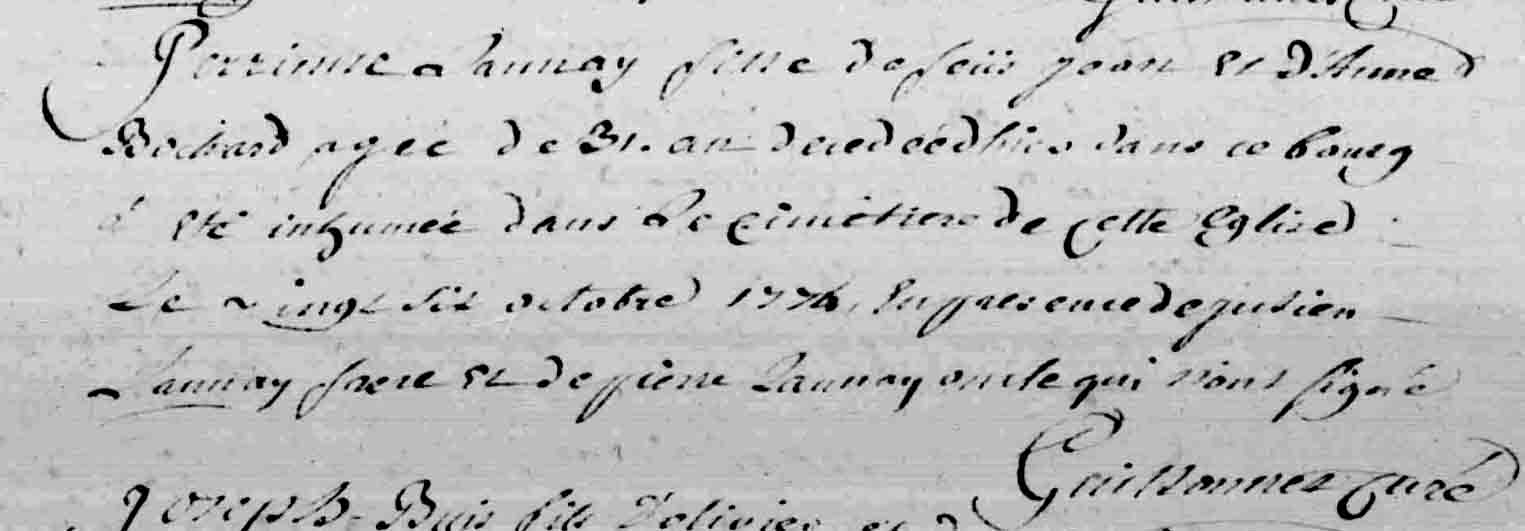 Perrinne Launay fille de feüs jean et d'Anne
Bochard agée de 31. an decedeé d'hier dans ce bourg
à eté inhumée dans Le cimétiere de cette Eglise
Le vingt six octobre 1774, En presence de julien
Launay frere et de pierre Launay oncle qui n'ont signé
curé
Joseph Buis fils d'olivier et d